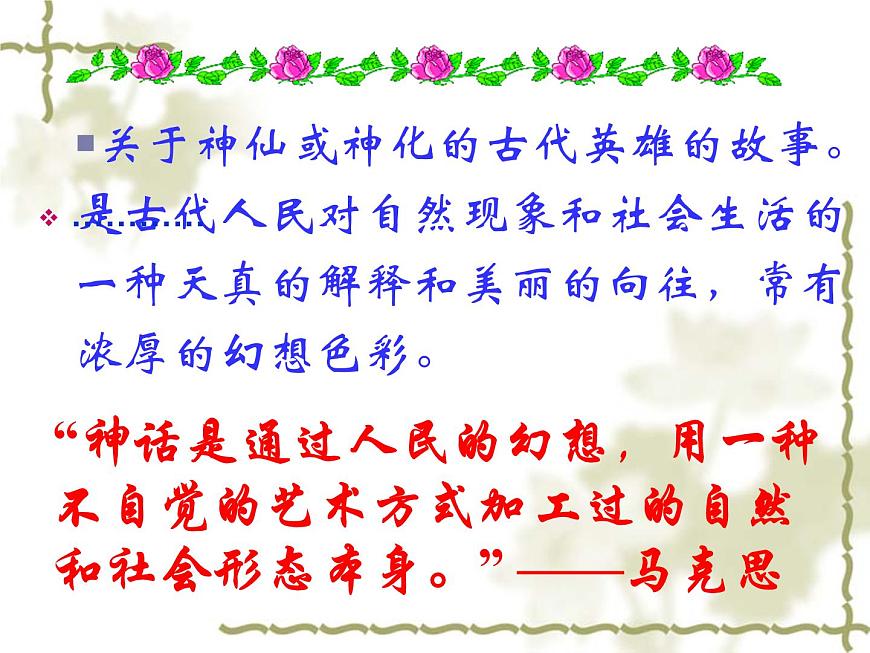 关于神仙或神化的古代英雄的故事。
…………
是古代人民对自然现象和社会生活的
一种天真的解释和美丽的向往，常有
浓厚的幻想色彩。
“神话是通过人民的幻想，用一种
不自觉的艺术方式加工过的自然
和社会形态本身。”——马克思